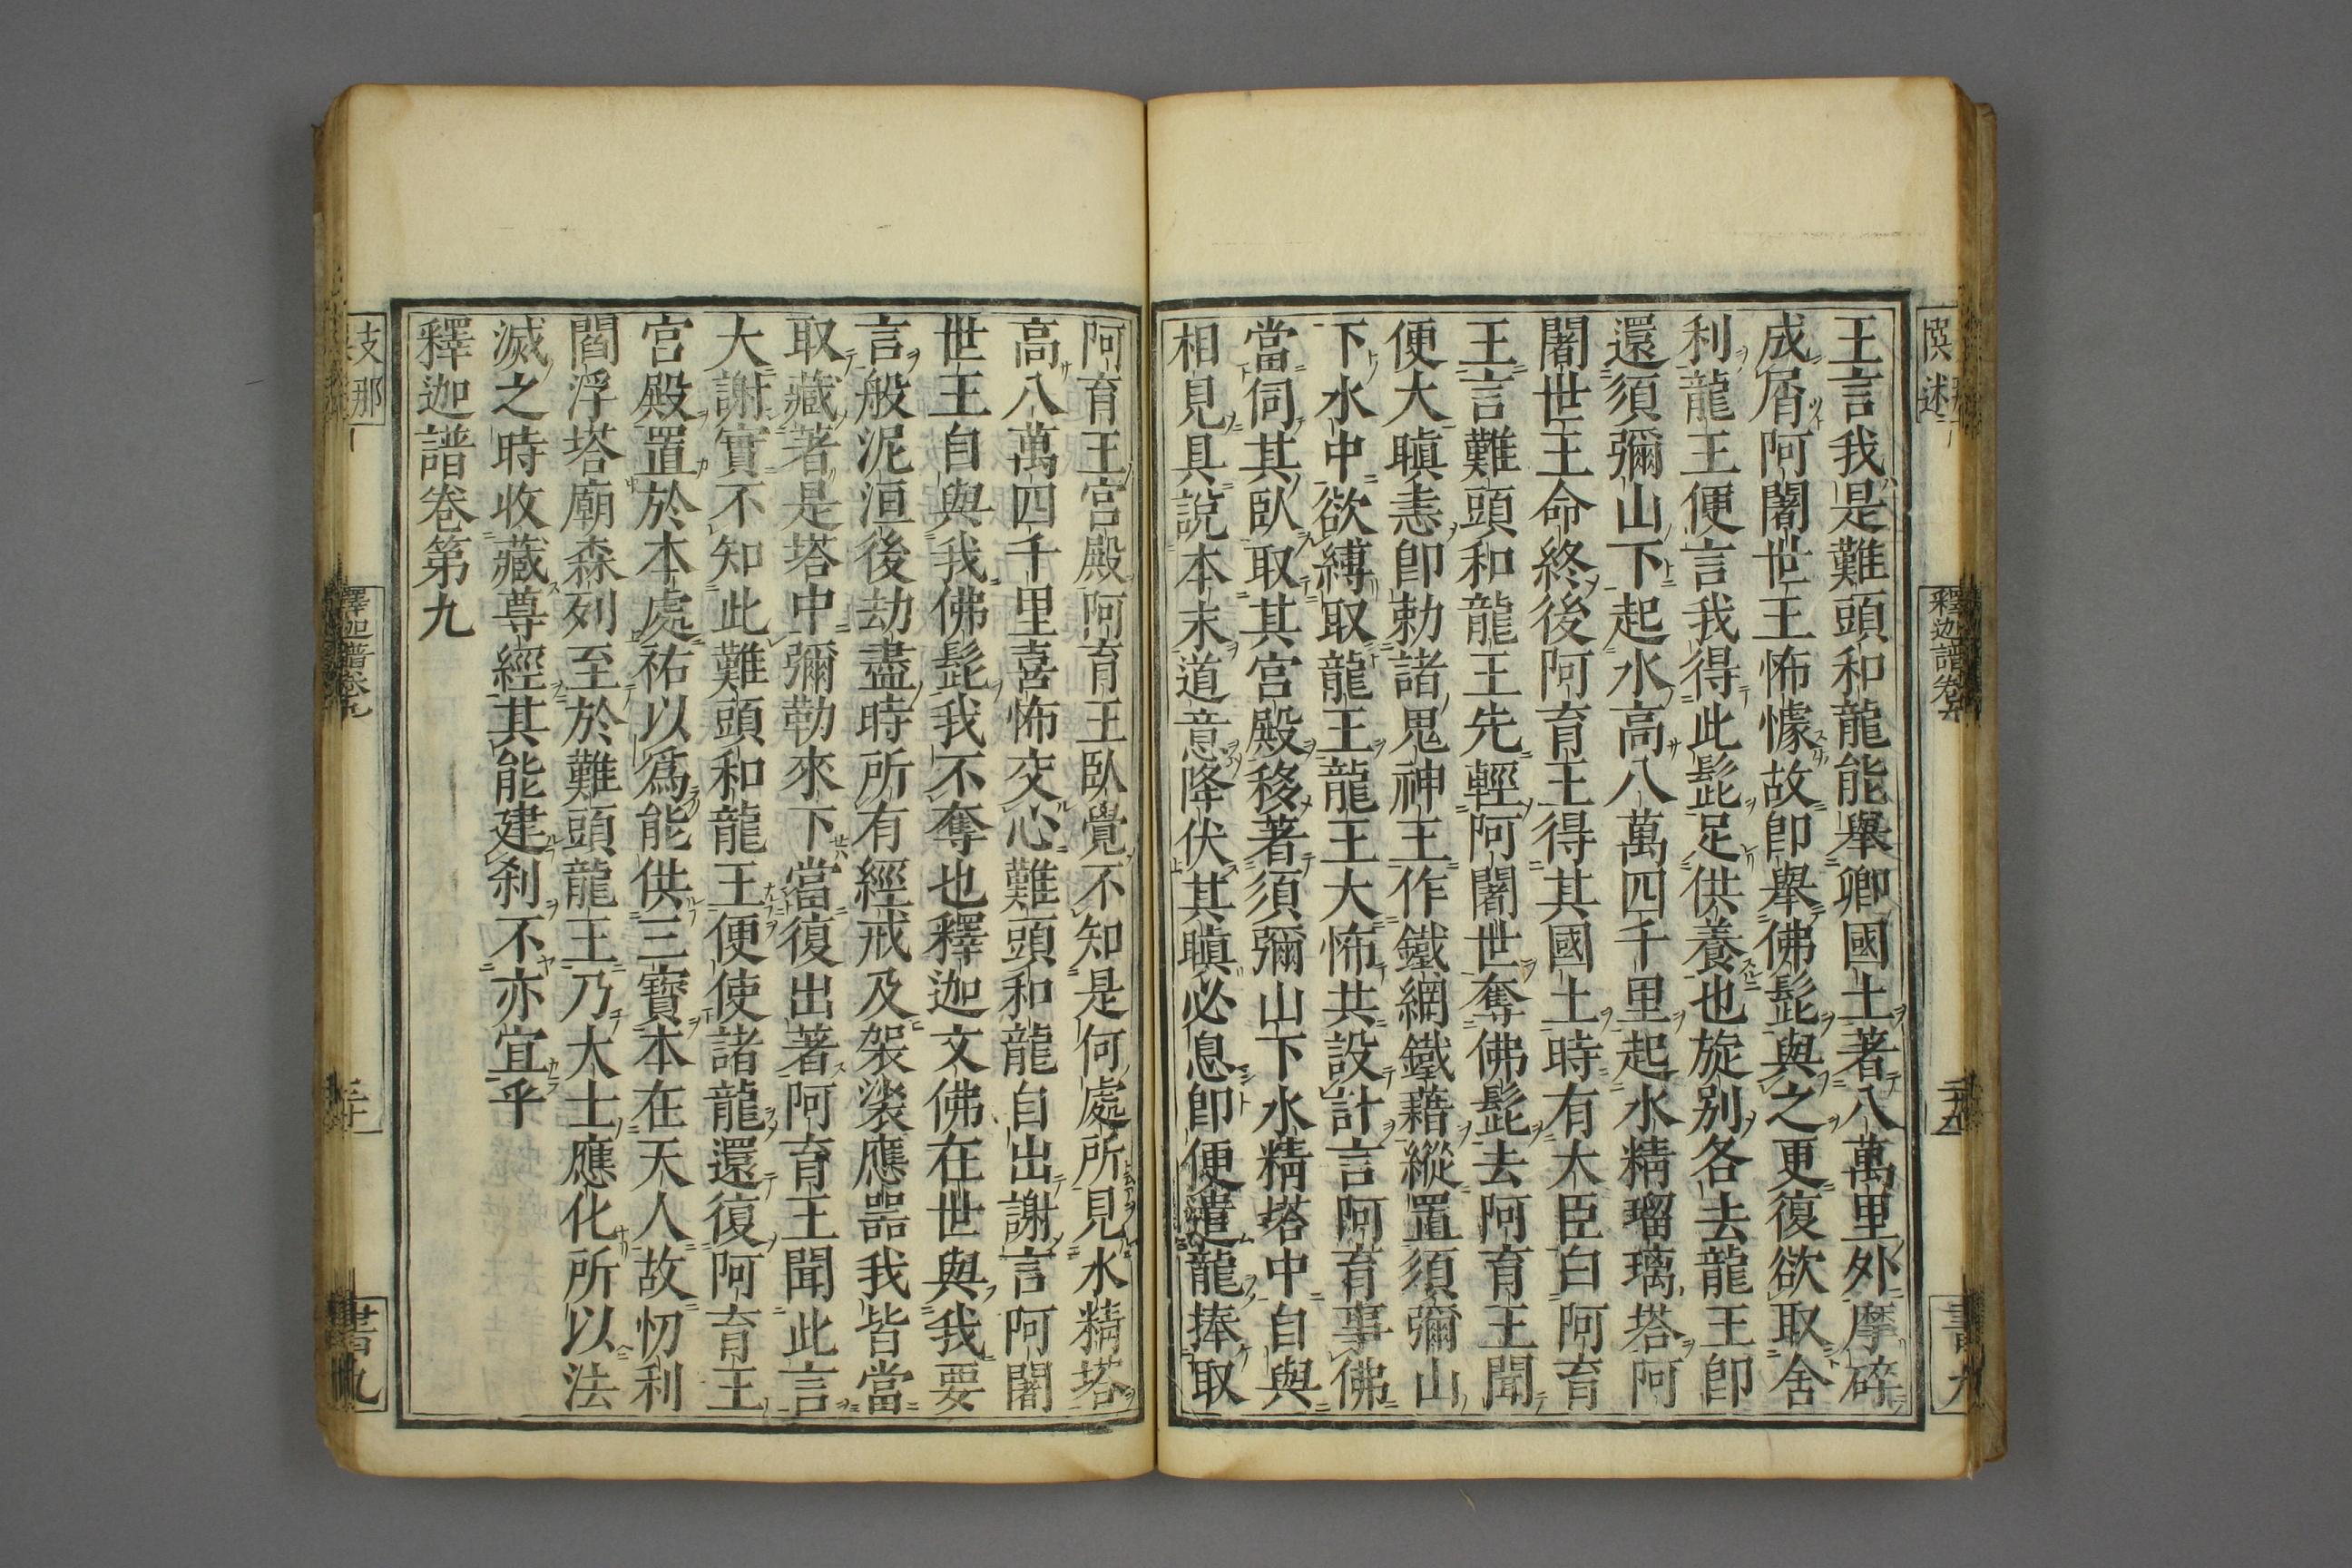 王言我是難頭和龍能舉卿國土著八萬里外摩碎
成屑阿闍世王怖懅故卽舉佛髭與之更復欲取舍
利龍王便言我得此髭足供養也旋別各去龍王卽
還須彌山下起水高八萬四千里起水精瑠璃塔阿
闍世王命終後阿育王得其國土時有大臣白阿育
王言難頭和龍王先輕阿闍世奪佛髭去阿育王聞
便大瞋恚卽勅諸鬼神王作鐵網鐵藉縱置須彌山
下水中欲縛取龍王龍王大怖共設計言阿育事佛
當伺其臥取其宮殿移著須彌山下水精塔中自與
相見具說本末道意降伏其瞋必息卽便遣龍捧取
阿育王宮殿阿育王臥覺不知是何處所見水精塔
高八萬四千里喜怖交心難頭和龍自出謝言阿闍
世王自與我佛髭我不奪也釋迦文佛在世與我要
言般泥洹後劫盡時所有經戒及袈裟應器我皆當
取藏著是塔中彌勒來下當復出著阿育王聞此言
大謝實不知此難頭和龍王便使諸龍還復阿育王
宮殿置於本處祐以爲能供三寶本在天人故忉利
閻浮塔廟森列至於難頭龍王乃大士應化所以法
滅之時收藏尊經其能建刹不亦宜乎
釋迦譜卷第九
支那
釋迦譜卷九
三十
書九